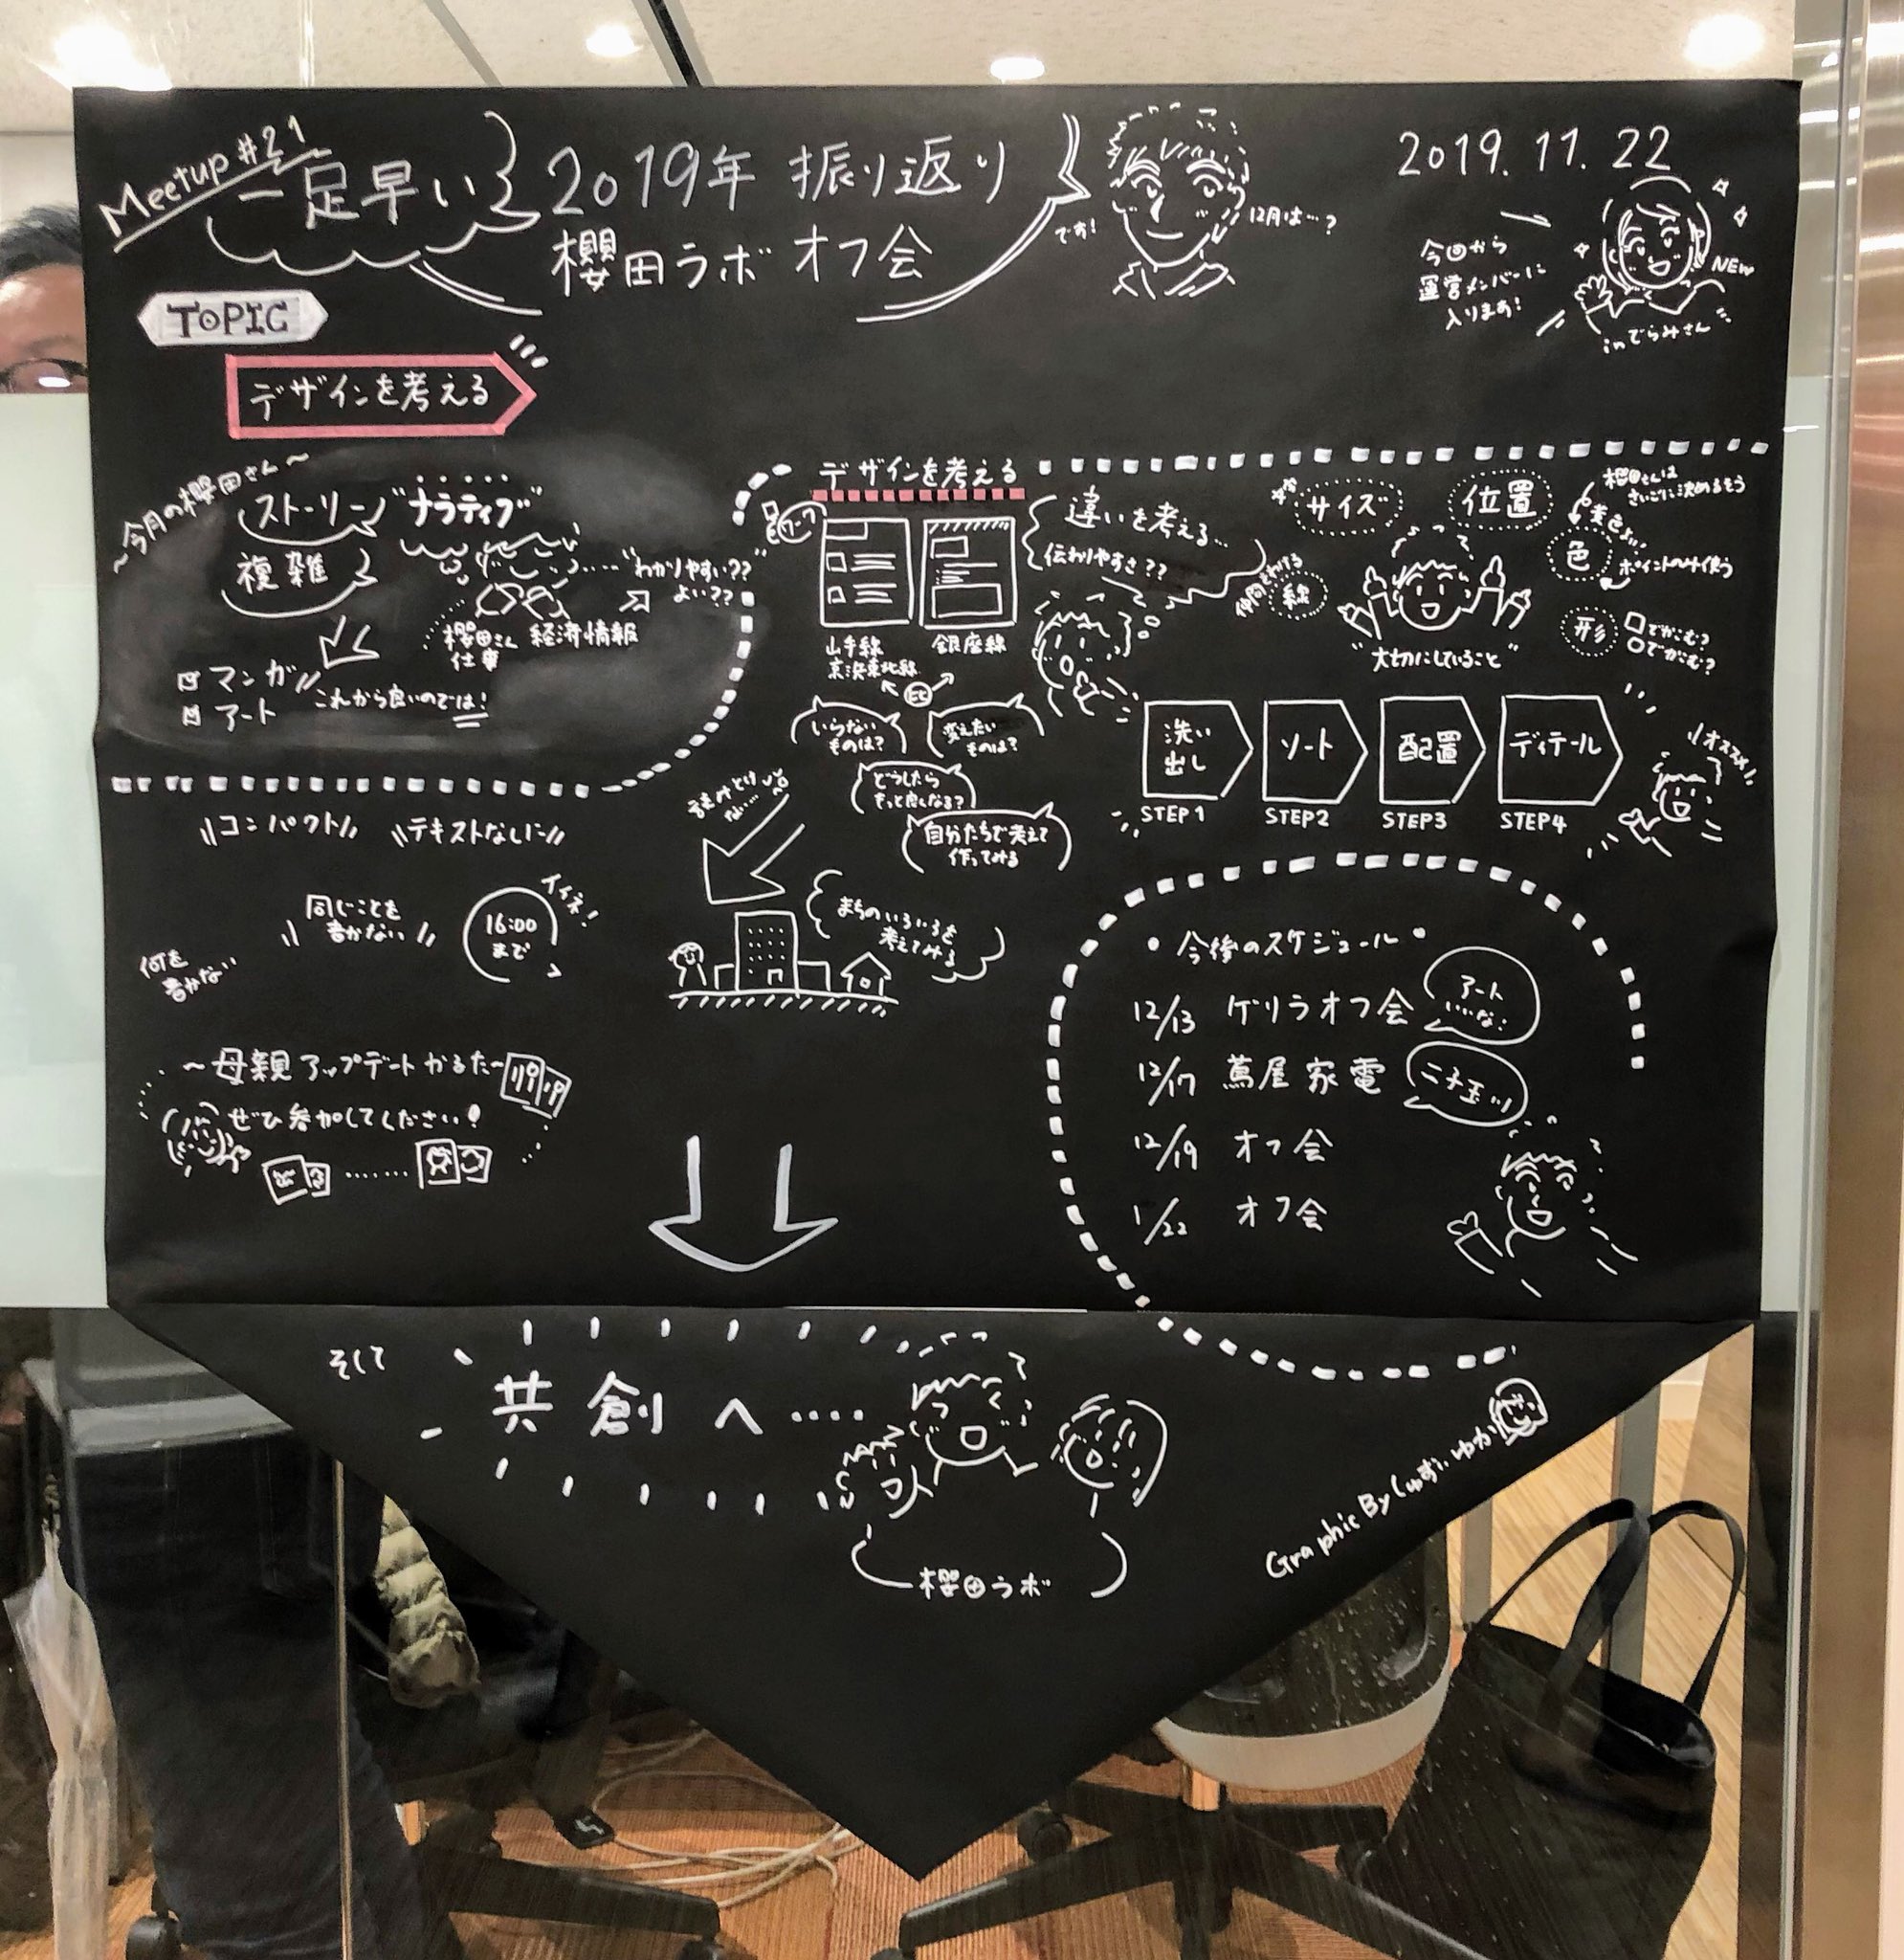 Meetup #21
一足早い
2019年 振り返り
櫻田ラボ オフ会
です!
12月は…?
2019. 11. 22
今回から
運営メンバーに
入ります!
NEW
inでらみさん
TOPIC
デザインを考える
~今月の櫻田さん~
ストーリー
"ナラティブ"
複雑
"わかりやすい??"
よい??
櫻田さん
仕事
経済情報
マンガ
アート
これから良いのでは!
デザインを考える
ワーク
山手線
京浜東北線
銀座線
比
違いを考える…
伝わりやすさ??
いらない
ものは?
変えたい
ものは?
どうしたら
もっと良くなる?
自分たちで考えて
作ってみる
読みとけ
ない…
まちのいろいろを
考えてみる
サイズ
位置
櫻田さんは
さいごに決めるそう
黄色
色
ポイントのみ使う
仲間をわける
線
形
□でかこむ?
○でかこむ?
"大切にしていること"
洗い
出し
ソート
配置
ディテール
STEP1
STEP2
STEP3
STEP4
オススメ!
コンパクト
テキストなしに
同じことを
書かない
16:00
まで
イイネ!
何を
書かない
~母親アップデートかるた~
ぜひ参加してください!
・今後のスケジュール・
12/13 ゲリラオフ会
アート
いいな:
12/17 蔦屋家電
二子玉
12/19 オフ会
1/22 オフ会
そして
共創へ….
櫻田ラボ
Graphic By しゅすい ゆか